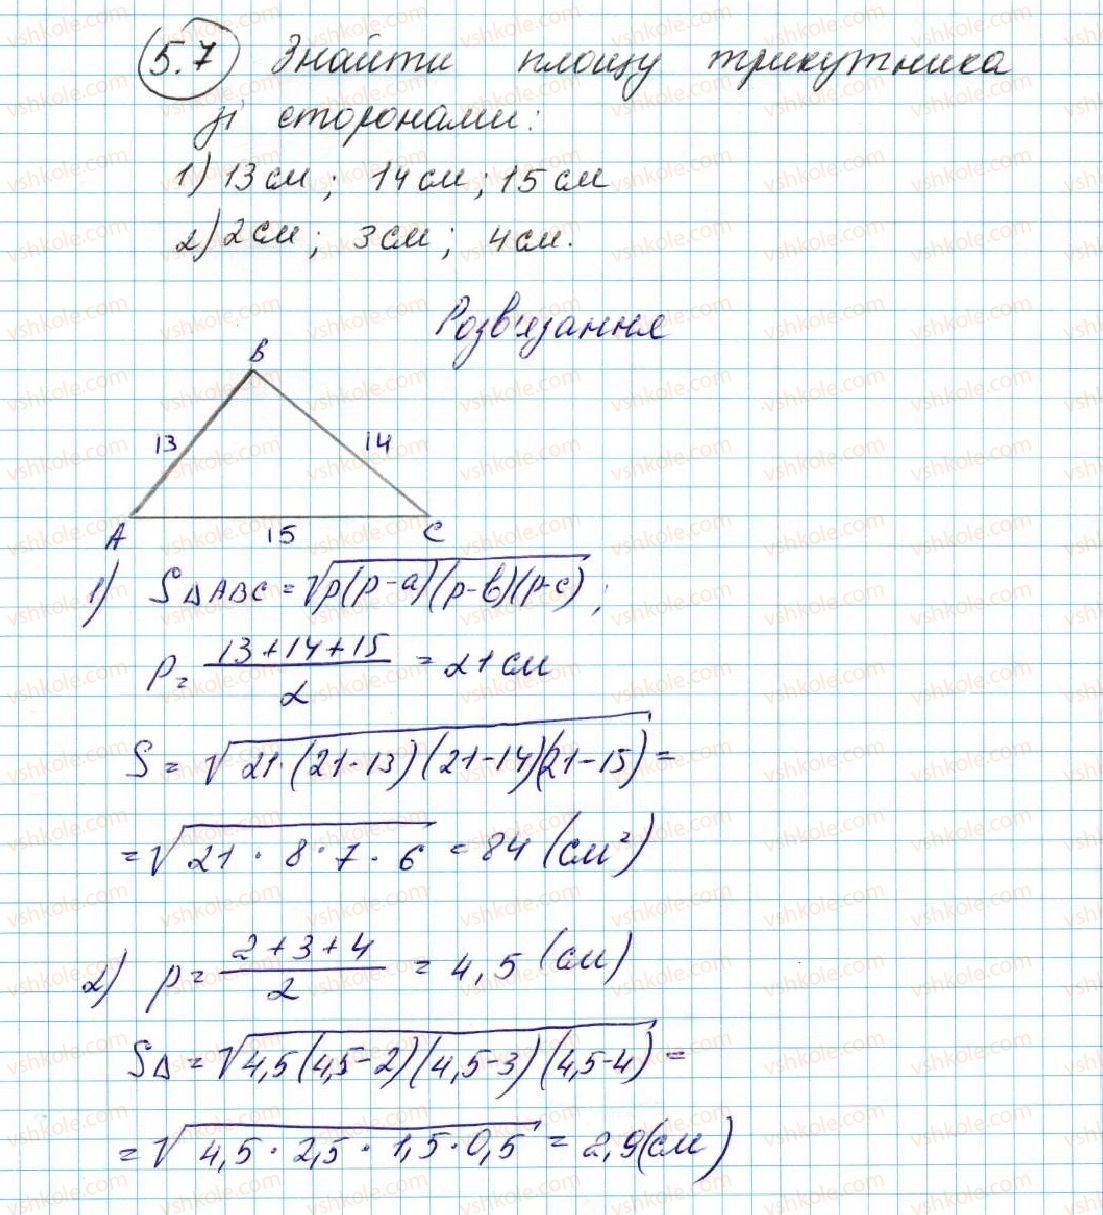 5.7 Знайти площу трикутника
зі сторонами:
1) 13 см; 14 см; 15 см
2) 2 см; 3 см; 4 см.
Розв'язання
B
13 14
A 15 C
1) S△ABC = √p(p-a)(p-b)(p-c);
p = (13+14+15)/2 = 21 см
S = √21·(21-13)(21-14)(21-15) =
= √21·8·7·6 = 84 (см²)
2) p = (2+3+4)/2 = 4,5 (см)
S△ = √4,5(4,5-2)(4,5-3)(4,5-4) =
= √4,5·2,5·1,5·0,5 = 2,9(см)
vshkole.com